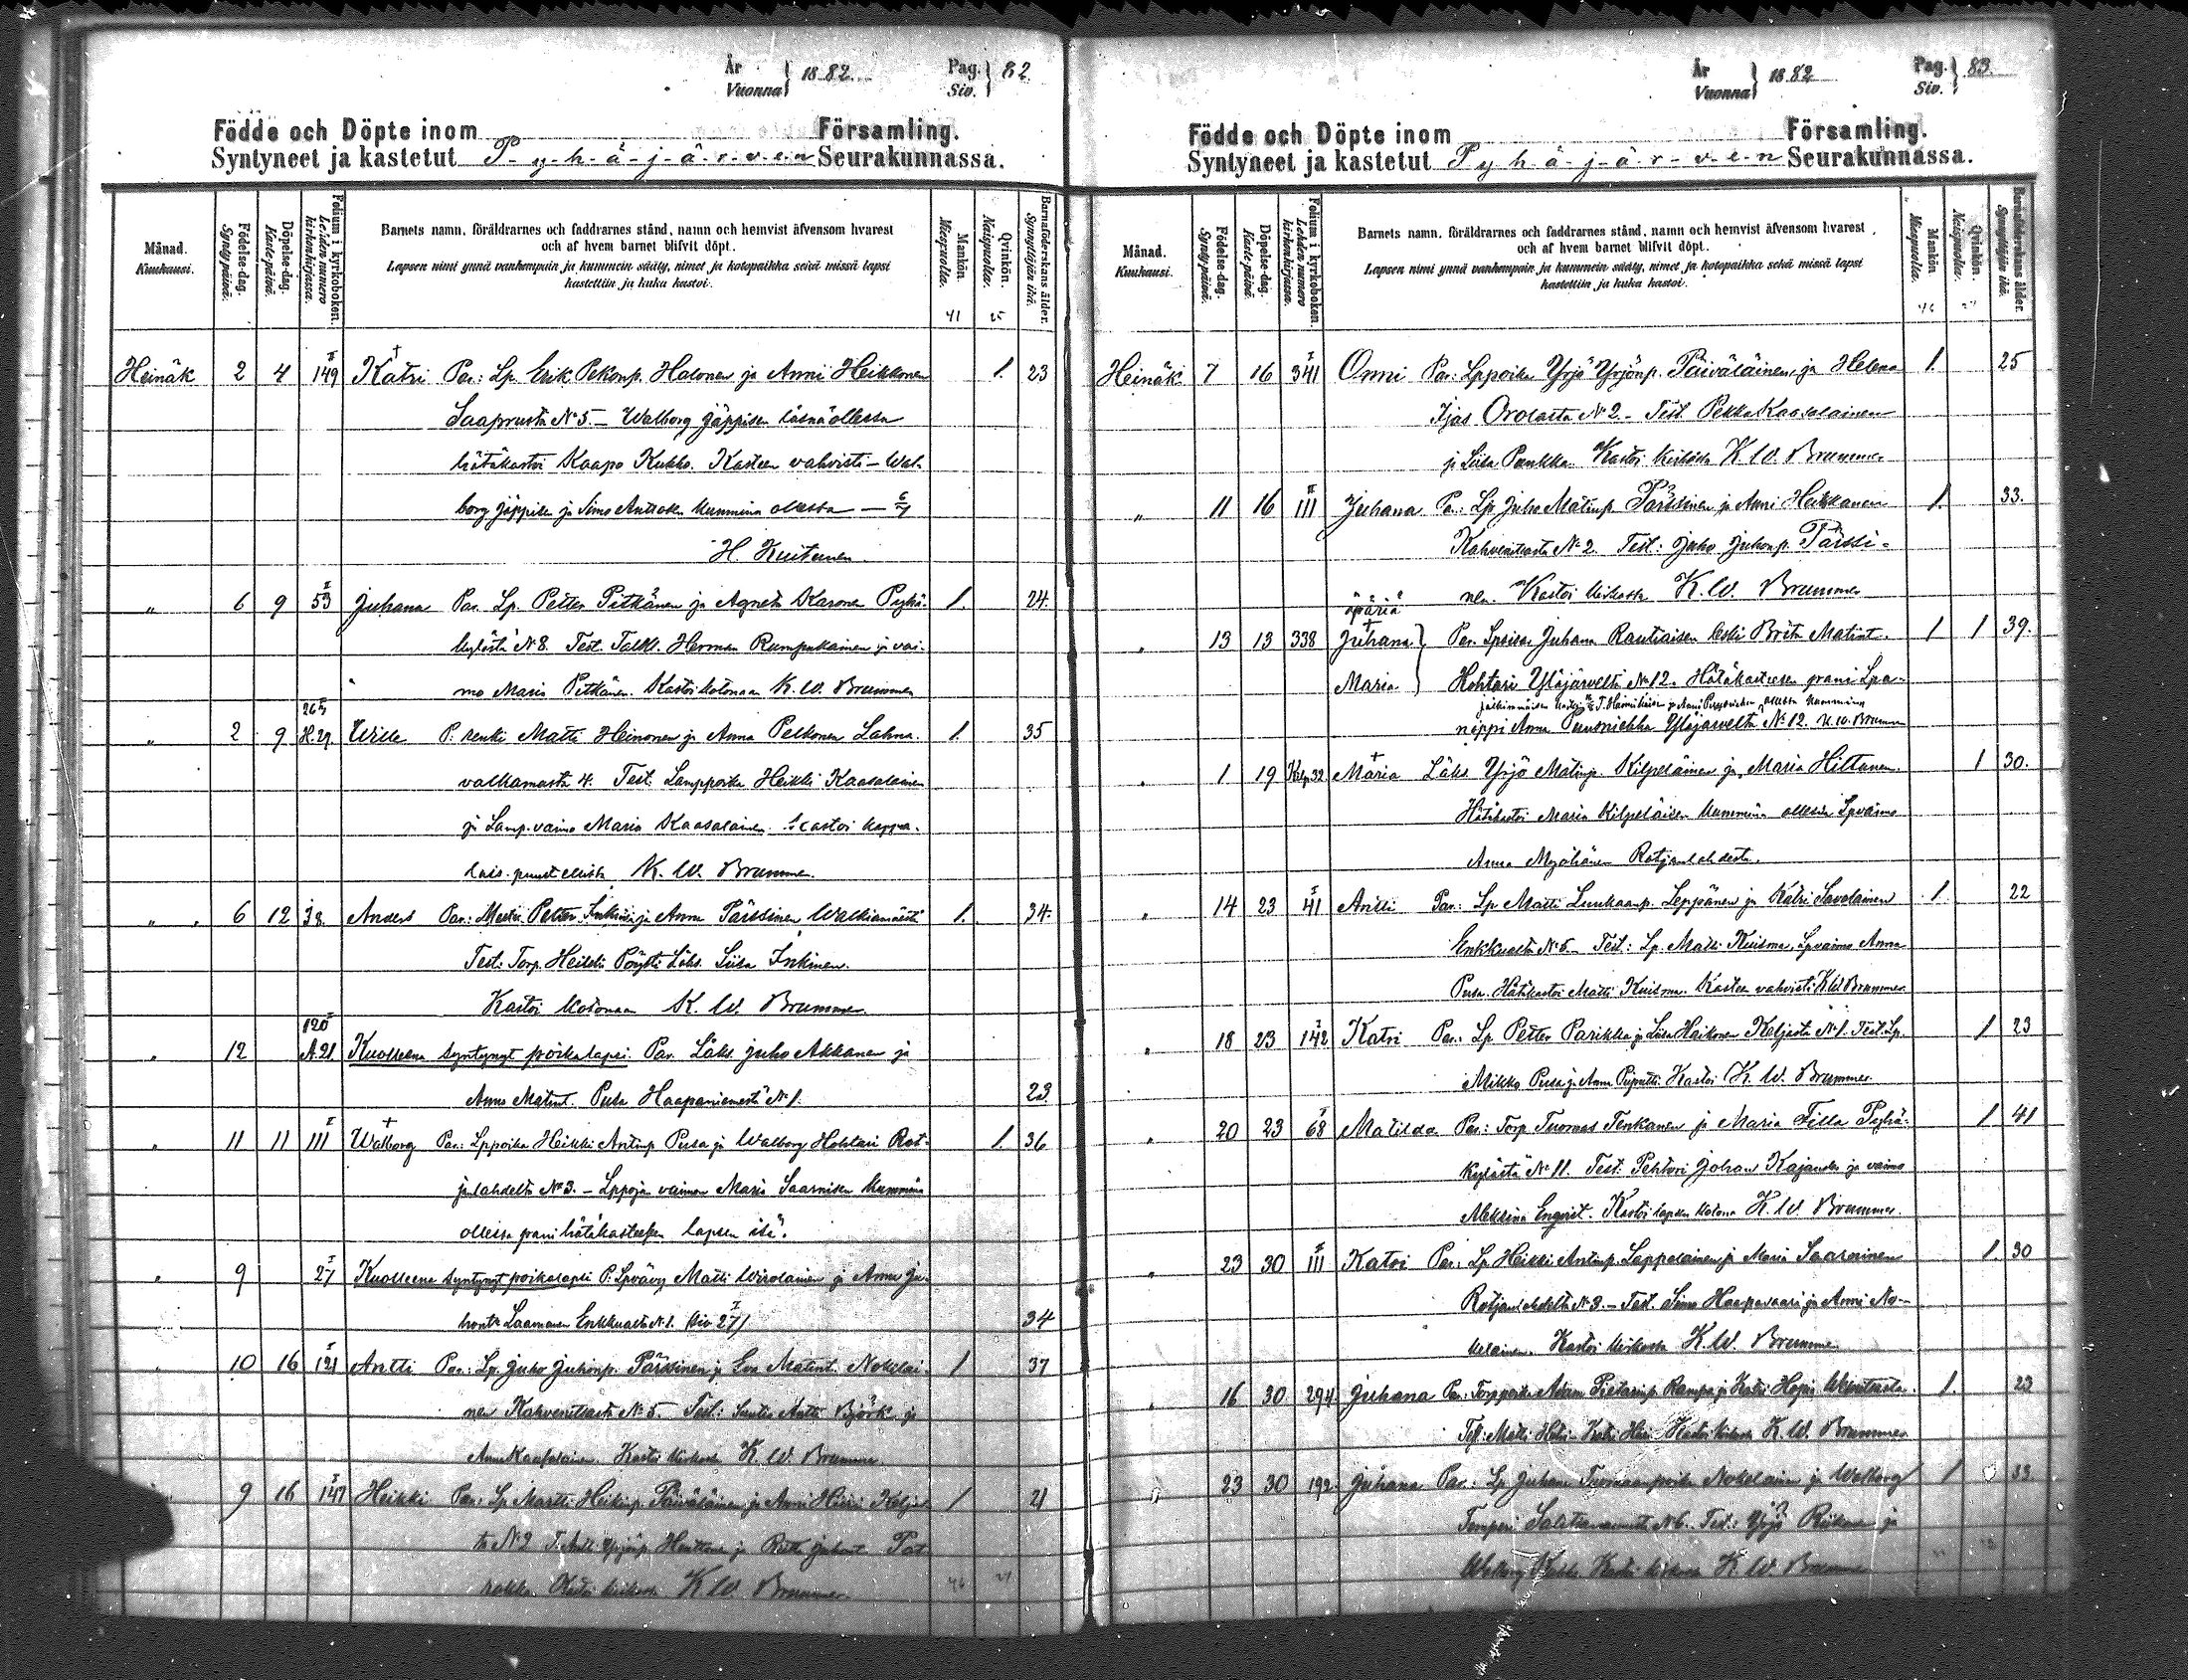 År Vuonna } 1882. Pag. Siv. } 82
Födde och Döpte inom Församling.
Syntyneet ja kastetut P-y-h-ä-j-ä-r-v-e-n Seurakunnassa.
Månad. Kuukausi.
Födelse-dag. Synty-päivä.
Döpelse-dag. Kaste-päivä.
Folium i kyrkoboken. Lehden numero kirkonkirjassa.
Barnets namn, föräldrarnes och faddrarnes stånd, namn och hemvist äfvensom hvarest
och af hvem barnet blifvit döpt.
Lapsen nimi ynnä vanhempain ja kummein sääty, nimet ja kotopaikka sekä missä lapsi
kastettiin ja kuka kastoi.
Mankön. Miespuolia.
Qvinkön. Naispuolia.
Barnaföderskans ålder. Synnyttäjän ikä.
41 25
Heinäk 2 4 II 149 Katri Par: Lp. Erik Pekonp. Halonen ja Anni Heikkonen 1. 23
Saaprusta No 5. – Walborg Jäppisen läsnäollessa
hätäkastoi Kaapo Kukko. Kasteen vahvisti – Wal-
borg Jäppisen ja Simo Anttosen kummina ollessa – 6/7
H. Kuitunen.
" 6 9 I 53 Juhana Par. Lp. Petter Pitkänen ja Agneta Karonen Pyhä- 1. 24.
kylästä No 8. Test. Talkl. Herman Rumpukainen ja vai-
mo Maria Pitkänen. Kastoi kotonaan K. W. Brummer
" 2 9 H.29. Wille P. renki Matti Heinonen ja Anna Pelkonen Lahna- 1. 35
valkamasta 4. Test. Lamppoika Heikki Kaasalainen
ja Lamp.vaimo Maria Kaasalainen. Kastoi kappa-
lais-puustellissa K. W. Brummer.
" 6 12 38. Anders Par: Petter Inkinen ja Anna Pärssinen Walkiamäestä 1. 34.
Test: Torp. Heikki Pöysti Läks. Liisa Inkinen.
Kastoi kotonaan K. W. Brummer.
" 12 120 A.21 Kuolleena syntynyt poikalapsi Par. Läks. Juho Akkanen ja
Anna Matint. Pusa Haapaniemestä No 1. 23
" 11 11 II 111 Walborg Par: Lppoika Heikki Antinp. Pusa ja Walborg Hohtari Rot- 1. 36
janlahdelta No 3. – Lppojan vaimon Maria Saarnisen kummina
ollessa pani hätäkasteesen lapsen isä.
" 9 I 27 Kuolleena syntynyt poikalapsi P. Lpvävy Matti Wirolainen ja Anna Ju-
hont. Laamanen Enkkualta No 1. (siv 27) 34
" 10 16 I 121 Antti Par: Lp. Juho Juhonp. Pärssinen ja Eva Matint. Nokelai- 1 37
nen Kahvenitsasta No 5. Test: Antti Björk ja
Anna Kaasalainen. Kastoi kirkossa K. W. Brummer.
9 16 I 147 Heikki Par: Lp. Martti Heikinp. Päiväläinen ja Anni Hiiri Kelja- 1 21
ta No 2 T. Antti Yrjönp. Huuttonen ja Riitta Juhont. Pat-
rakka. Kastoi kirkossa K. W. Brummer.
År Vuonna } 1882 Pag. Siv. } 83.
Födde och Döpte inom Församling.
Syntyneet ja kastetut P y h ä - j - ä - r - v - e - n Seurakunnassa.
Månad. Kuukausi.
Födelse-dag. Synty-päivä.
Döpelse-dag. Kaste-päivä.
Folium i kyrkoboken. Lehden numero kirkonkirjassa.
Barnets namn, föräldrarnes och faddrarnes stånd, namn och hemvist äfvensom hvarest
och af hvem barnet blifvit döpt.
Lapsen nimi ynnä vanhempain ja kummein sääty, nimet ja kotopaikka sekä missä lapsi
kastettiin ja kuka kastoi.
Mankön. Miespuolia.
Qvinkön. Naispuolia.
Barnaföderskans ålder. Synnyttäjän ikä.
Heinäk 7 16 I 341 Onni Par: Lppoika Yrjö Yrjönp. Päiväläinen ja Helena 1. 25
Ijas Orolasta No 2 – Test. Pekka Kaasalainen
ja Liisa Paukku. Kastoi kirkossa K. W. Brummer
" 11 16 II 111 Juhana Par: Lp. Juho Matinp. Pärssinen ja Anni Heikkanen 1. 33.
Kahvenitsasta No 2. Test: Juho Juhonp. Pärssi-
nen. Kastoi kirkossa K. W. Brummer
äpäriä
" 13 13 338 Juhana } Par. Lpsisar Juhana Rautiaisen leski Brita Matint. 1 1 39.
Maria } Hohtari Ylöjärveltä No 12. Hätäkasteesen pani Lpa-
näppi Anna Puusniekka Ylöjärveltä No 12. K. W. Brummer
" 1 19 Kelp.32 Maria Läks. Yrjö Matinp. Kilpeläinen ja Maria Hiltunen. 1 30.
Hätäkastoi Maria Kilpeläisen kummina ollessa Lpvaimo
Anna Myöhänen Rotjanlahdesta.
" 14 23 I 41 Antti Par: Lp. Matti Luukaanp. Leppänen ja Katri Savolainen 1. 22
Enkkualta No 5 – Test: Lp. Matti Kuisma, Lpvaimo Anna
Pusa. Hätäkastoi Matti Kuisma. Kasteen vahvisti K. W. Brummer.
" 18 23 I 142 Katri Par: Lp. Petter Parikka ja Liisa Haikonen Keljasta No 1. Test. Lp. 1 23
Mikko Pusa ja Anna Kastoi K. W. Brummer.
" 20 23 I 68 Matilda Par: Torp. Tuomas Tenkanen ja Maria Filla Pyhä- 1 41
kylästä No 11. Test. Pehtori Johan Kajander ja vaimo
Aleksina Enqvist. Kastoi lapsen kotona K. W. Brummer.
" 23 30 II 111 Katri Par: Lp. Heikki Antinp. Lappalainen ja Maria Saarninen 1. 30
Rotjanlahdelta No 3. – Test. Simo Haapavaari ja Anni No-
kelainen. Kastoi kirkossa K. W. Brummer
" 16 30 294. Juhana Par: Torppoika Adam Pietarinp. Rampa ja Katri 1. 23
Test: Matti Katri Kastoi kirkossa K. W. Brummer
" 23 30 192. Juhana Par: Lp. Juhana Tuomaanpoika Nokelainen ja Walborg 1 33.
Temperi No 6. Test: Yrjö ja
Walborg Kastoi kirkossa K. W. Brummer